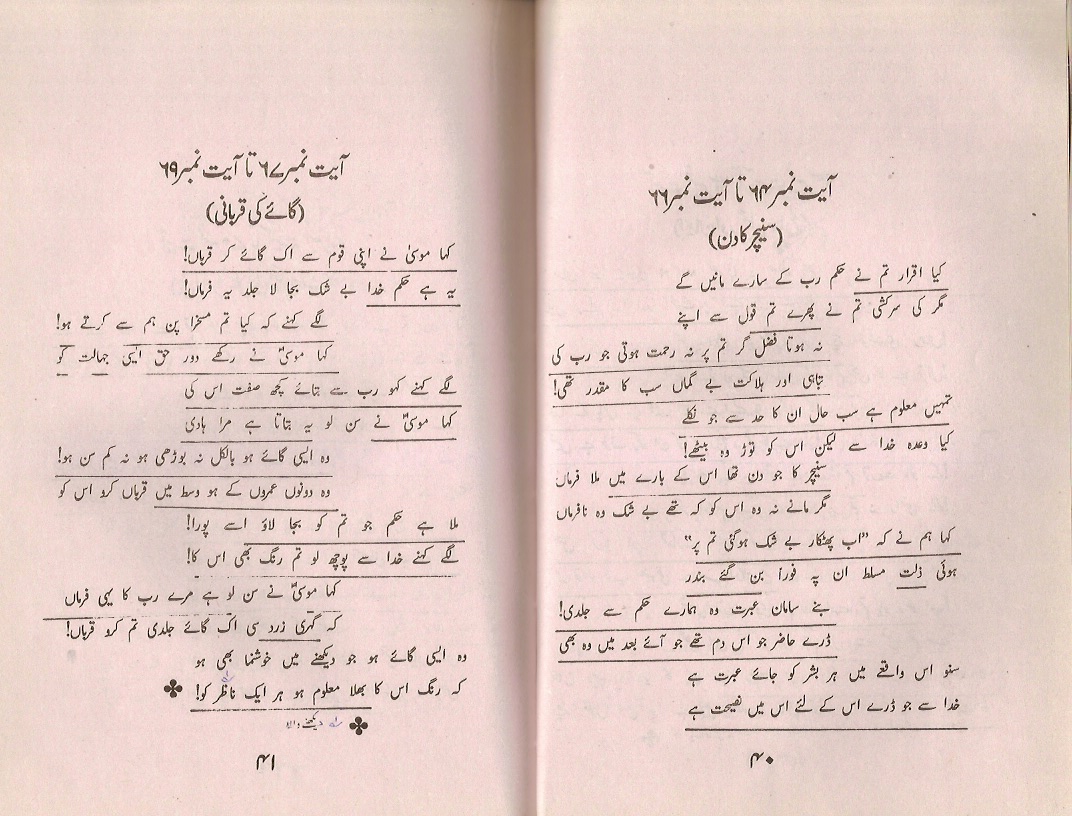 آیت نمبر ۶۴ تا آیت نمبر ۶۶
(سنیچر کا دن)
کیا اقرار تم نے حکم رب کے سارے مانیں گے
مگر کی سرکشی تم نے پھرے تم قول سے اپنے
نہ ہوتا فضل گر تم پر نہ رحمت ہوتی جو رب کی
تباہی اور ہلاکت بے گماں سب کا مقدر تھی!
تمہیں معلوم ہے سب حال ان کا حد سے جو نکلے
کیا وعدہ خدا سے لیکن اس کو توڑ وہ بیٹھے!
سنیچر کا جو دن تھا اس کے بارے میں ملا فرماں
مگر مانے نہ وہ اس کو کہ تھے بے شک وہ نافرماں
کہا ہم نے کہ "اب پھٹکار بے شک ہوگئی تم پر"
ہوئی ذلت مسلط ان پہ فوراً بن گئے بندر
بنے سامان عبرت وہ ہمارے حکم سے جلدی!
ڈرے حاضر جو اس دم تھے جو آئے بعد میں وہ بھی
سنو اس واقعے میں ہر بشر کو جائے عبرت ہے
خدا سے جو ڈرے اس کے لئے اس میں نصیحت ہے
۴۰
آیت نمبر ۶۷ تا آیت نمبر ۶۹
(گائے کی قربانی)
کہا موسیٰ نے اپنی قوم سے اک گائے کر قرباں!
یہ ہے حکم خدا بے شک بجا لا جلد یہ فرماں!
لگے کہنے کہ کیا تم مسخرا پن ہم سے کرتے ہو!
کہا موسیٰؑ نے رکھے دور حق ایسی جہالت کو
لگے کہنے کہو رب سے بتائے کچھ صفت اس کی
کہا موسیٰؑ نے سن لو یہ بتاتا ہے مرا ہادی
وہ ایسی گائے ہو بالکل نہ بوڑھی ہو نہ کم سن ہو!
وہ دونوں عمروں کے ہو وسط میں قرباں کرو اس کو
ملا ہے حکم جو تم کو بجا لاؤ اسے پورا!
لگے کہنے خدا سے پوچھ لو تم رنگ بھی اس کا!
کہا موسیٰؑ نے سن لو ہے مرے رب کا یہی فرماں
کہ گہری زرد سی اک گائے جلدی تم کرو قرباں!
وہ ایسی گائے ہو جو دیکھنے میں خوشنما بھی ہو
کہ رنگ اس کا بھلا معلوم ہو ہر ایک ناظر کو!
دیکھنے والا
۴۱